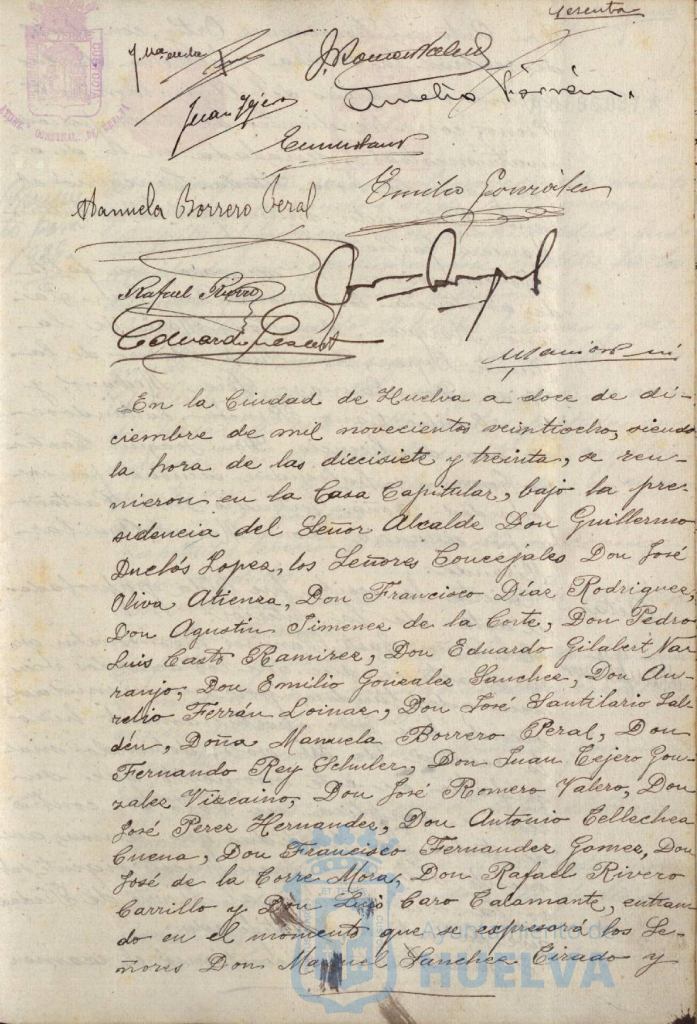 Juan Tejero
Aurelio Ferrán
Manuela Borrero Peral
Emilio González
Rafael Rivero
En la Ciudad de Huelva a doce de di-
ciembre de mil novecientos veintiocho, siendo
la hora de las diecisiete y treinta, se reu-
nieron en la Casa Capitular, bajo la pre-
sidencia del Señor Alcalde Don Guillermo
Duclós Lopez, los Señores Concejales Don José
Oliva Atienza, Don Francisco Díaz Rodriguez,
Don Agustin Jimenez de la Corte, Don Pedro
Luis Casto Ramirez, Don Eduardo Gilabert Na-
ranjo, Don Emilio Gonzalez Sanchez, Don Au-
relio Ferrán Loinaz, Don José Santilario Sal-
dén, Doña Manuela Borrero Peral, Don
Fernando Rey Schuler, Don Juan Tejero Gon-
zalez Vizcaino, Don José Romero Valero, Don
José Perez Hernandez, Don Antonio Tellechea
Cuena, Don Francisco Fernandez Gomez, Don
José de la Torre Mora, Don Rafael Rivero
Carrillo y Don Lujó Caro Talamante, entran-
do en el momento que se expresará los Se-
ñores Don Manuel Sanchez Tirado y
Ayuntamiento de
HUELVA